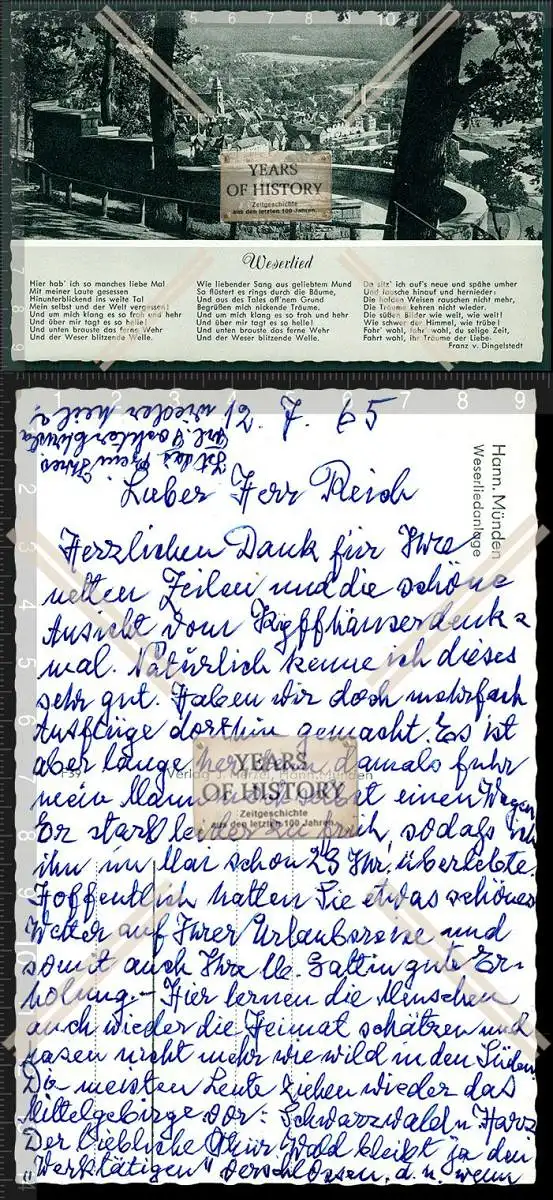 YEARS
OF HISTORY
Zeitgeschichte
aus den letzten 100 Jahren.
Weserlied
Hier hab' ich so manches liebe Mal
Mit meiner Laute gesessen
Hinunterblickend ins weite Tal
Mein selbst und der Welt vergessen!
Und um mich klang es so froh und hehr
Und über mir tagt es so helle!
Und unten brauste das ferne Wehr
Und der Weser blitzende Welle.
Wie liebender Sang aus geliebtem Mund
So flüstert es rings durch die Bäume,
Und aus des Tales off'nem Grund
Begrüßen mich nickende Träume.
Und um mich klang es so froh und hehr
Und über mir tagt es so helle!
Und unten brauste das ferne Wehr
Und der Weser blitzende Welle.
Da sitz' ich auf's neue und spähe umher
Und lausche hinauf und hernieder:
Die holden Weisen rauschen nicht mehr,
Die Träume kehren nicht wieder.
Die süßen Bilder wie weit, wie weit!
Wie schwer der Himmel, wie trübe!
Fahr' wohl, fahr' wohl, du selige Zeit,
Fahrt wohl, ihr Träume der Liebe.
Franz v. Dingelstedt
Hann. Münden
Weserliedanlage
Ist das Bein Ihres
wieder heil?
12. 7. 65
Lieber Herr Reich
Herzlichen Dank für Ihre
netten Zeilen und die schöne
Ansicht vom Kyffhäuserdenk=
mal. Natürlich kenne ich dieses
sehr gut. Haben wir doch mehrfach
Ausflüge dorthin gemacht. Es ist
aber lange her, denn damals fuhr
mein Mann noch selbst einen Wagen
Er starb leider zu früh, sodaß ich
ihn im Mai schon 23 Jhr. überlebte.
Hoffentlich hatten Sie etwas schönes
Wetter auf Ihrer Urlaubsreise und
somit auch Ihre lb. Gattin gute Er-
holung. – Hier lernen die Menschen
auch wieder die Heimat schätzen und
rasen nicht mehr wie wild in den Süden
Die meisten Leute ziehen wieder das
Mittelgebirge vor: Schwarzwald u. Harz
Der liebliche Thür. Wald bleibt ja den
"Werktätigen" verschlossen, d. h. wenn
F39
Verlag J. Merzel, Hann. Münden
YEARS
OF HISTORY
Zeitgeschichte
aus den letzten 100 Jahren.